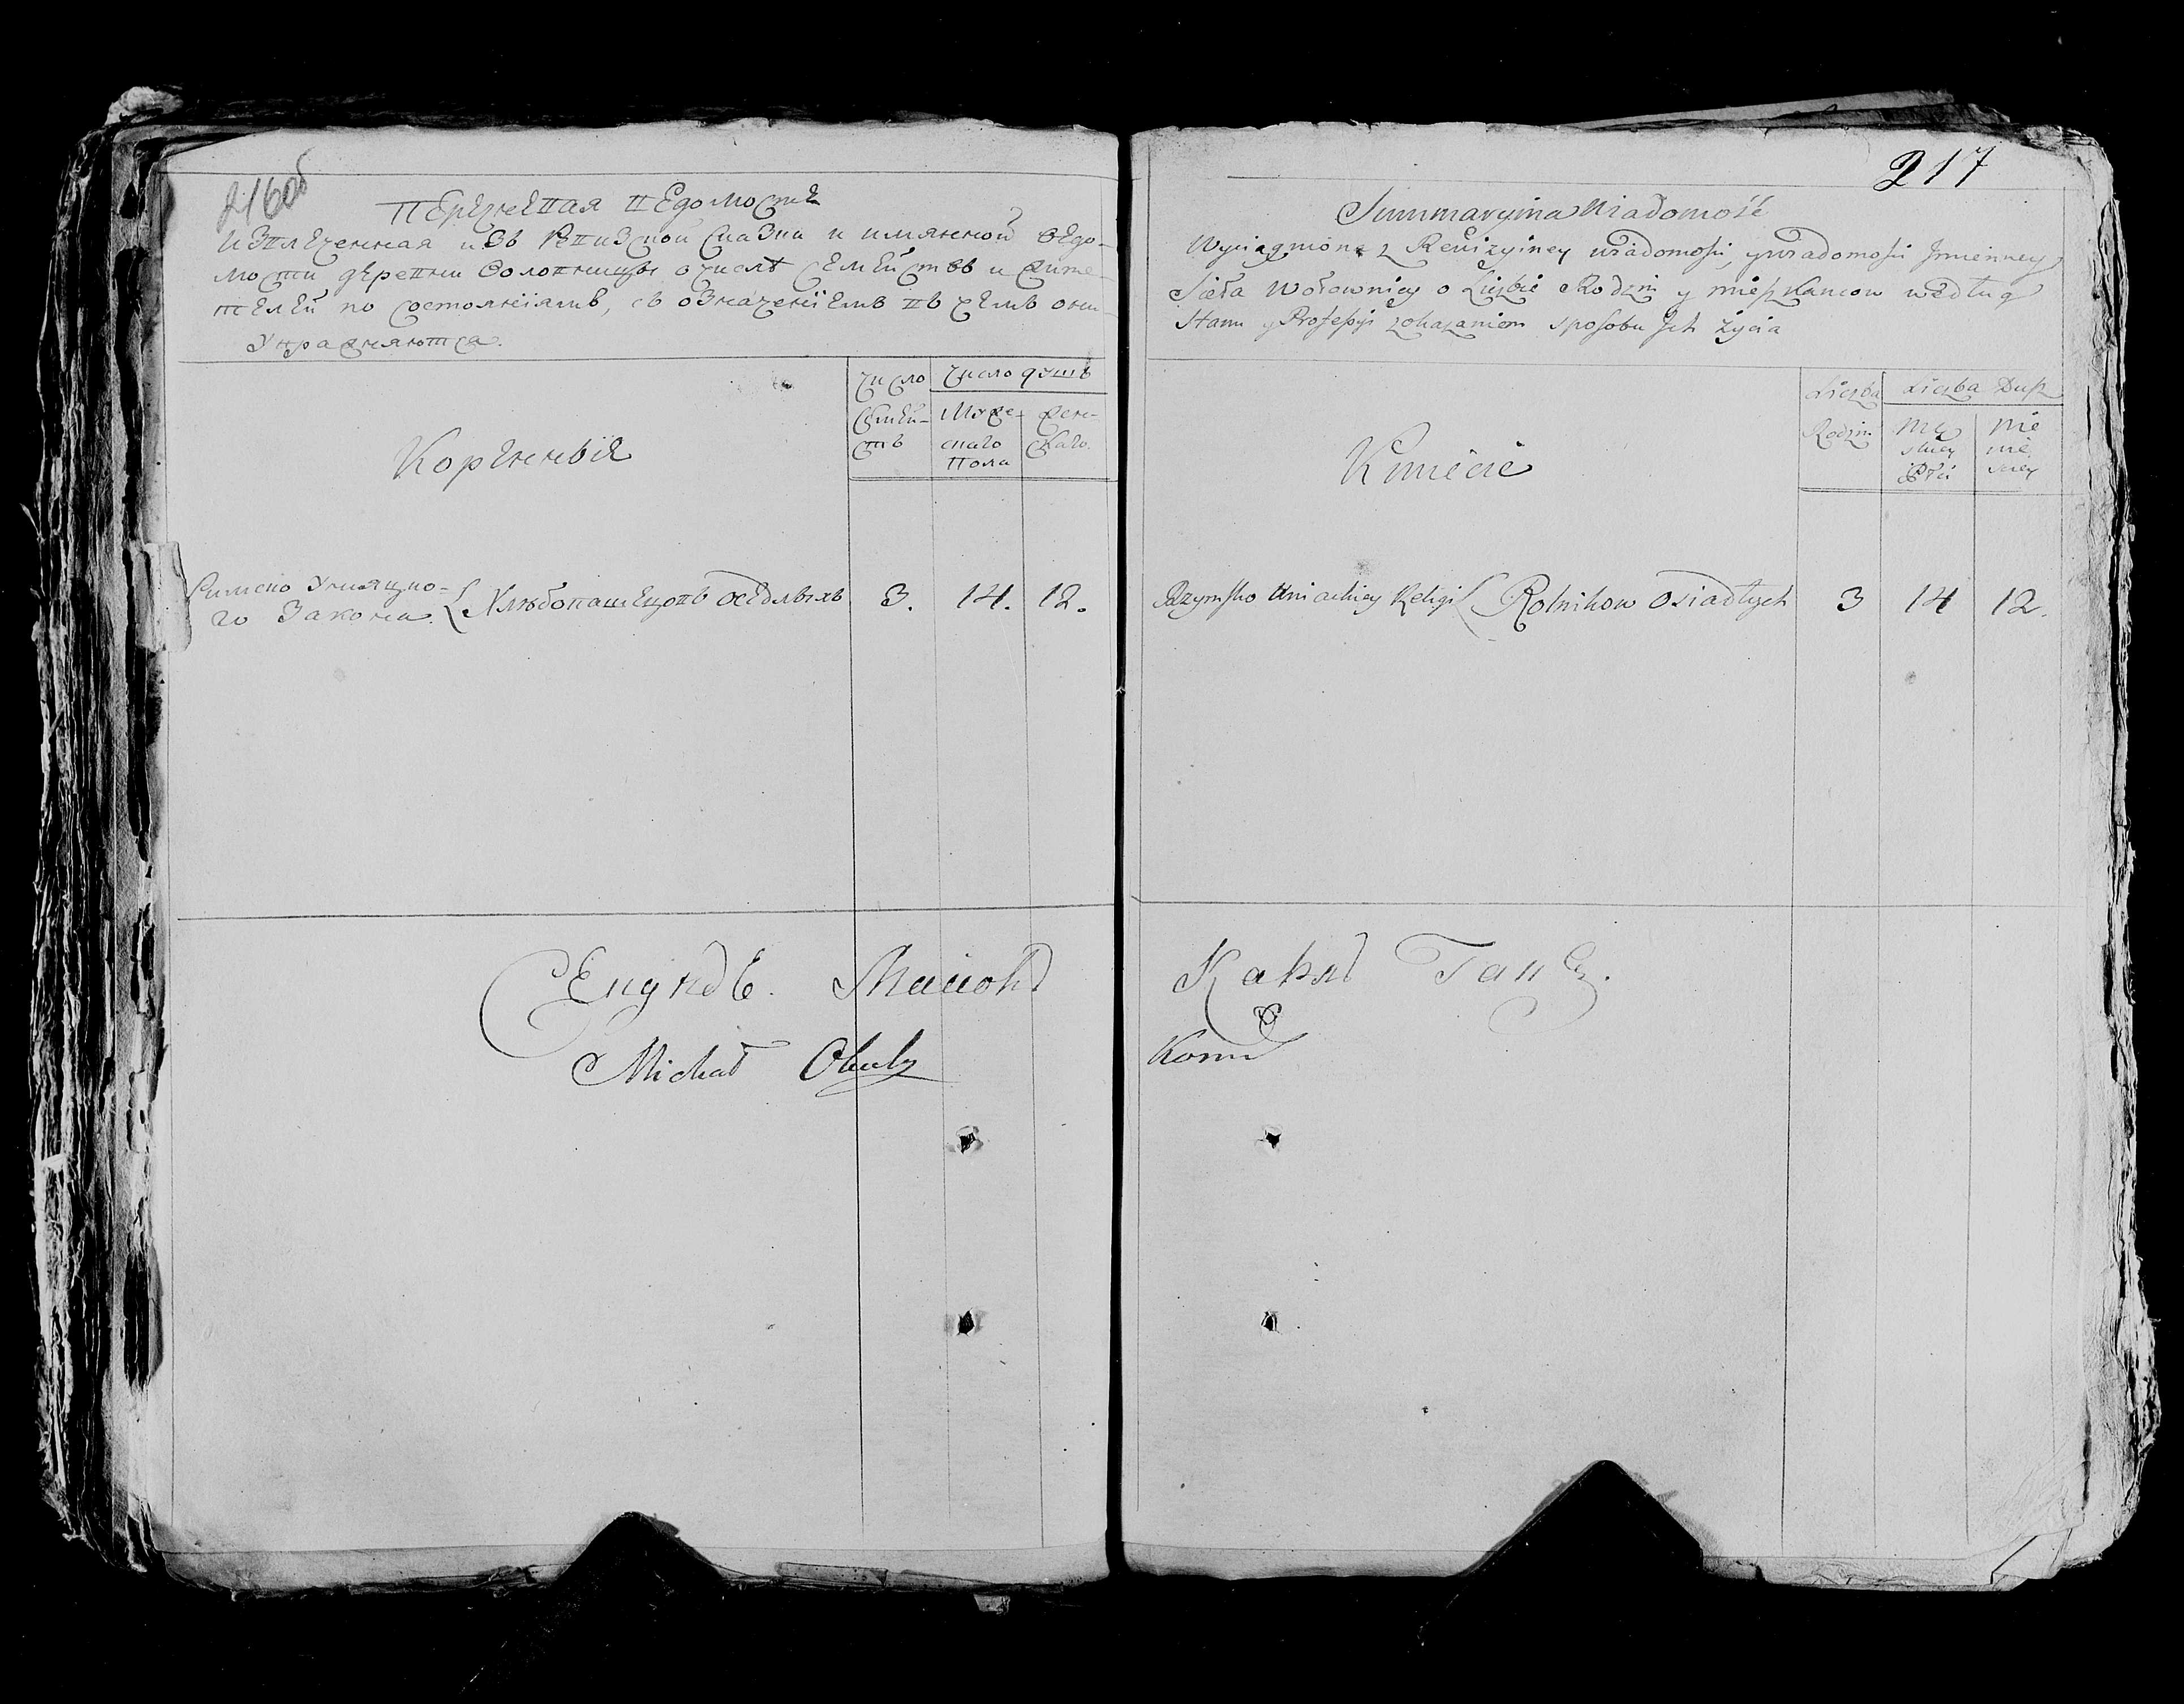 216об
Перечневая Ведомость
Извлеченная изъ Ревизской Сказки и имянной Ведо-
мости деревни Воловницы о числѣ Семействъ и жите-
телей по состоянїямъ, съ означенїемъ въ чемъ они
Упражняются.
Число Семей-ствъ
Число душъ
Мужескаго Пола
Женскаго.
Коренныя
Римско Унияцко-
го Закона. { Хлѣбопашецовъ оседлыхъ 3. 14. 12.
Маіоръ
Michał
217
Summaryina Wiadomość
Wyciągniona z Rewizyiney wiadomości, y wiadomości Jmienney
Sieła Wołownicy o Liczbie Rodzin y mieszkancow według
Stanu y Professyi z okazaniem sposobu Jch życia
Liczba Rodzin
Liczba Dusz
Mę skiey Płci
Nie wie sciey
Kmiecie
Rzymsko Uniackiey Religi { Rolnikow Osiadłych 3 14 12.